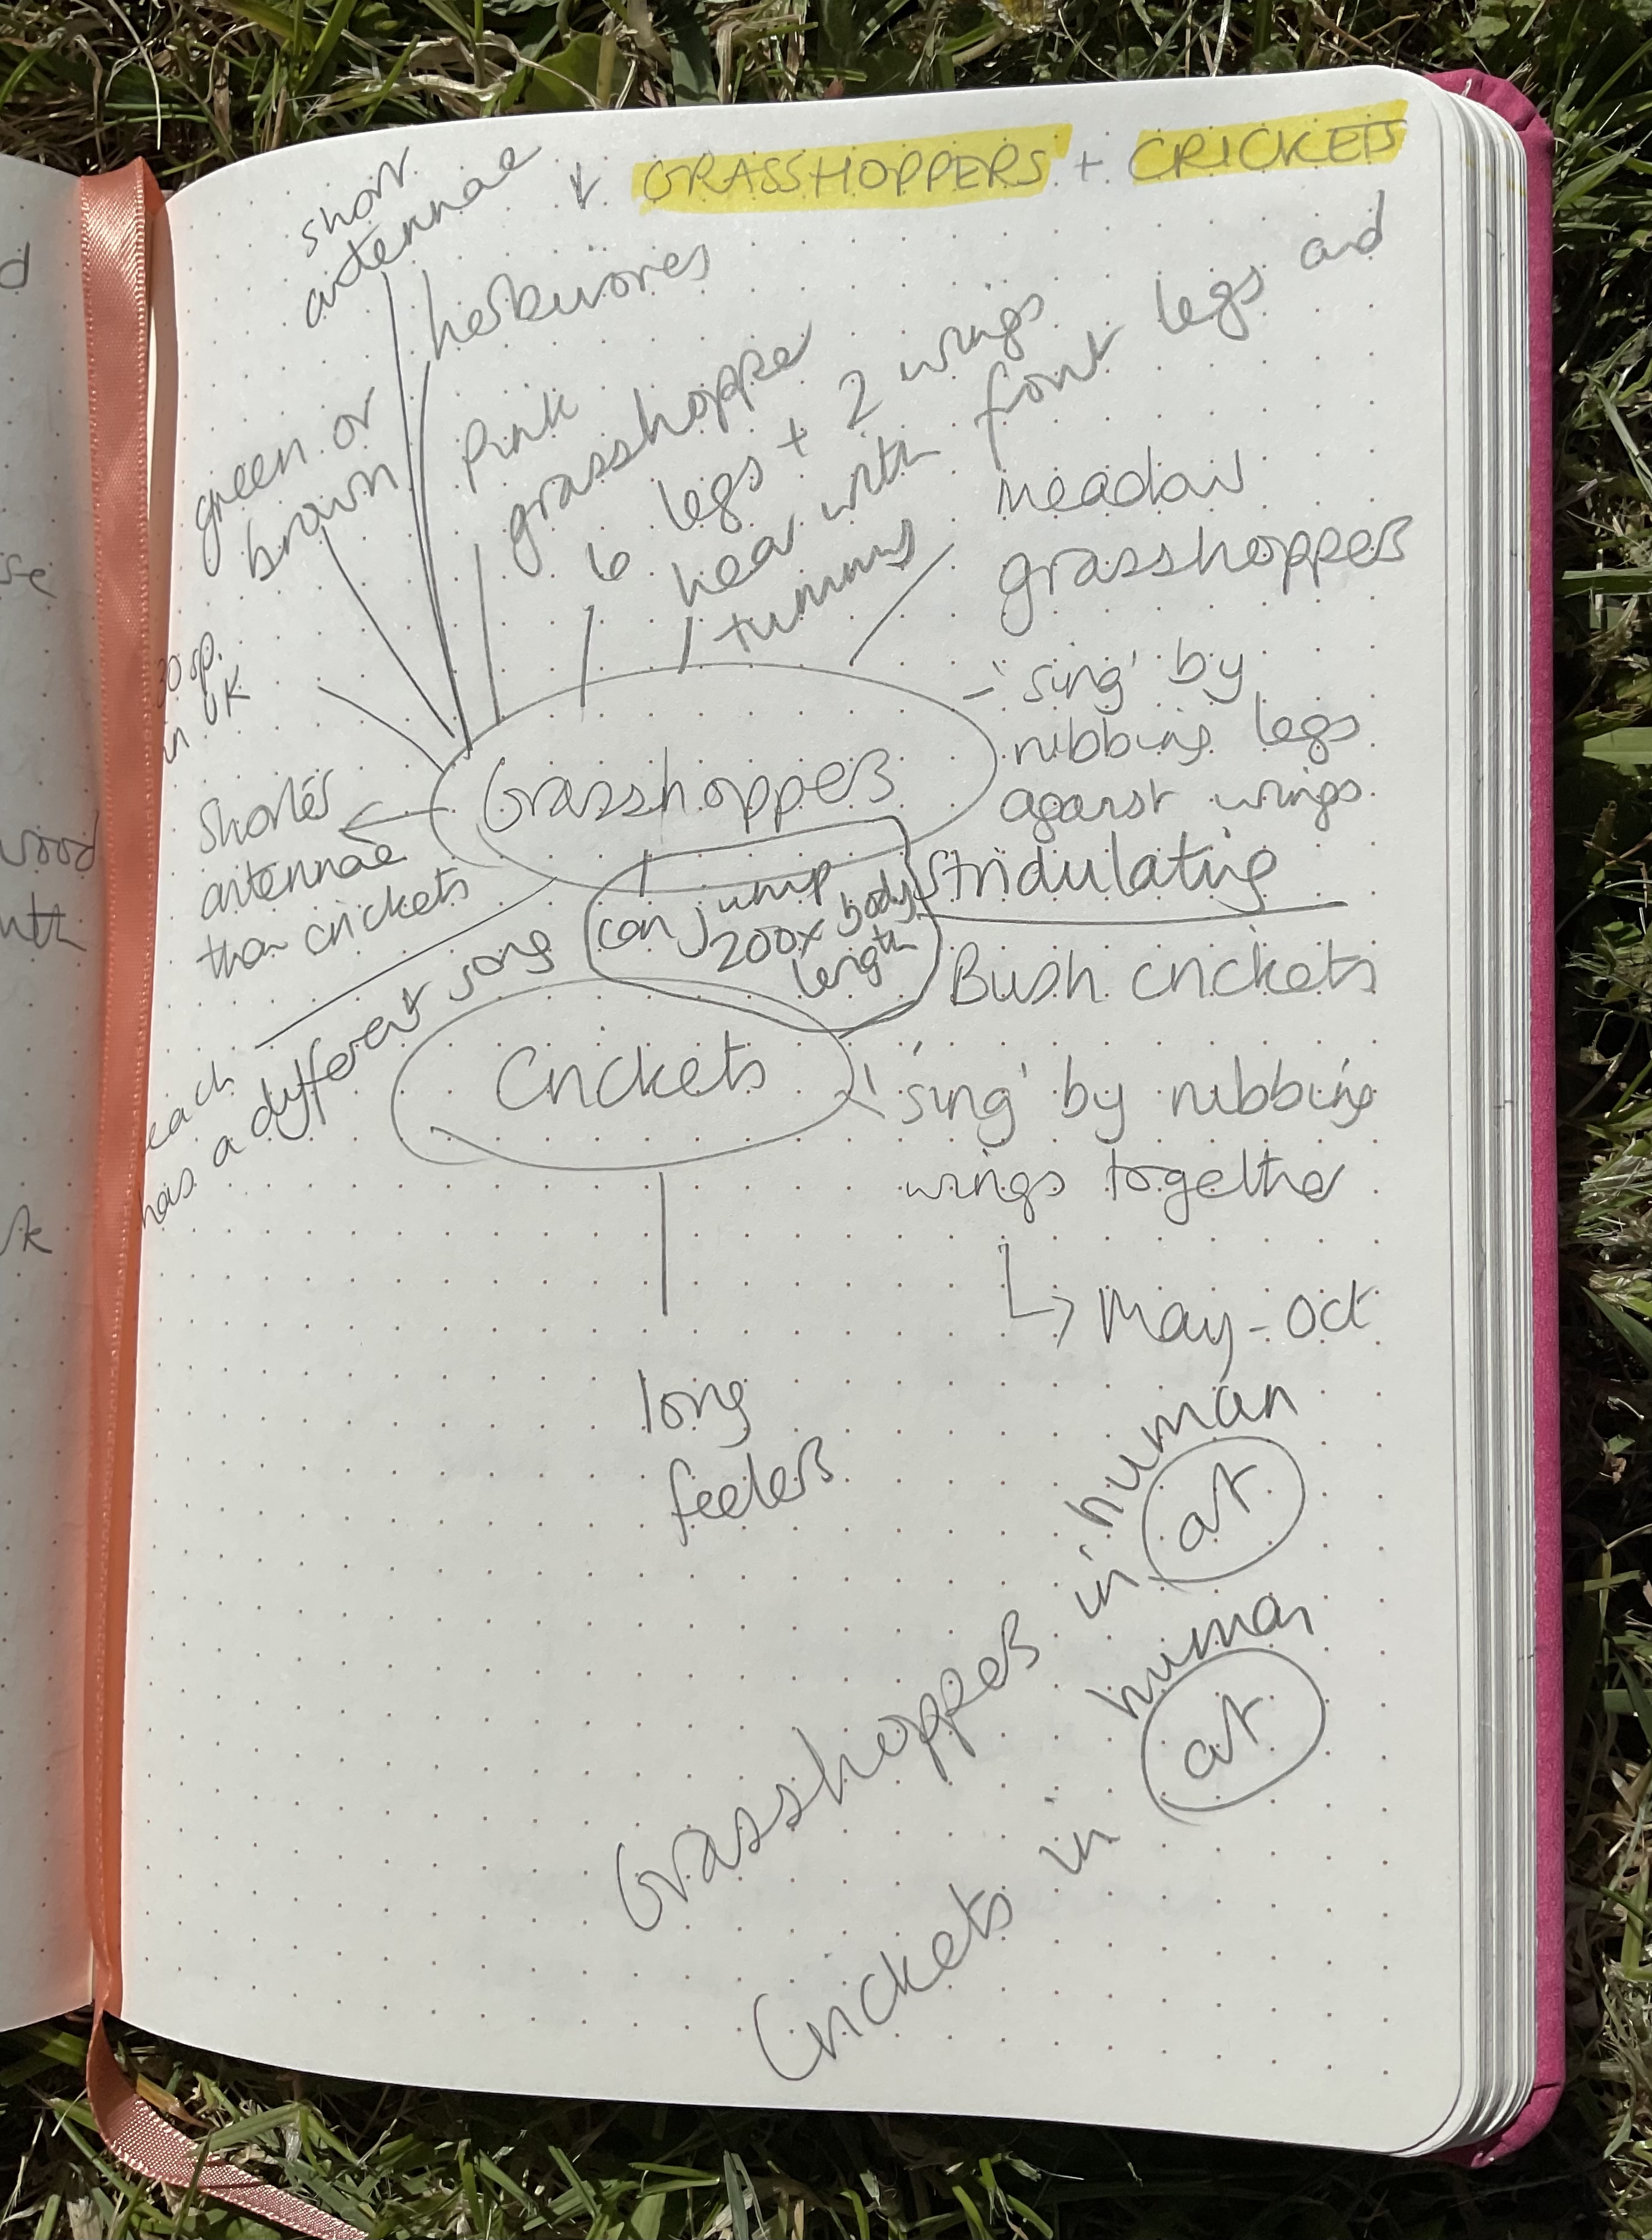 GRASSHOPPERS + CRICKETS
short
antennae
herbivores
green or
brown
Pink
grasshopper
6 legs + 2 wings
hear with front legs and
tummy
meadow
grasshoppers
30 sp.
in UK
Grasshoppers
- 'sing' by
rubbing legs
against wings
Stridulating
Shorter
antennae
than crickets
can jump
200x body
length
each
has a different song
Crickets
Bush crickets
'sing' by rubbing
wings together
May - Oct
long
feelers
Grasshoppers in human
art
Crickets in human
art
d
se
wood
nth
k